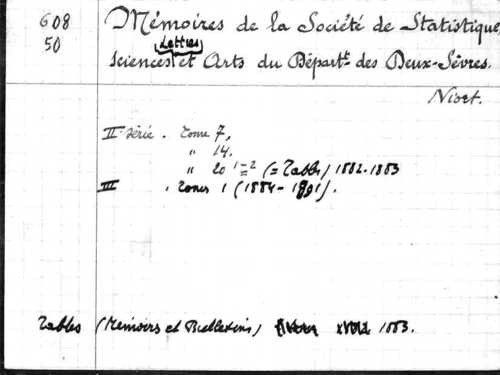 608
50
Mémoires de la Société de Statistique,
Sciences Lettres et Arts du Départt des Deux-Sèvres.
Niort.
II série . Tome 7,
" 14.
" 20 1-2 (= Tables) 1882-1883
III . Tomes 1 (1884-1891).
Tables (Mémoirs et Bulletins) 1883.